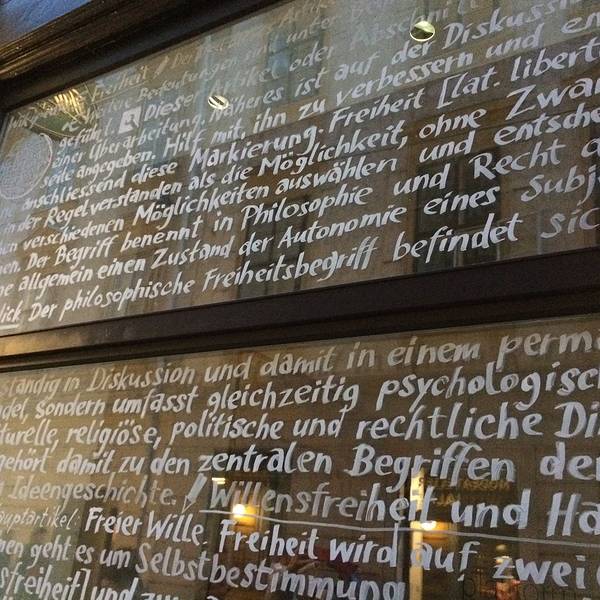 Freiheit Der
weitere Bedeutungen sind unter
geführt. Diese Artikel oder Abschnitt
einer Überarbeitung. Näheres ist auf der Diskussion
seite angegeben. Hilf mit, ihn zu verbessern und en
anschliessend diese Markierung. Freiheit [lat. libert
in der Regel verstanden als die Möglichkeit, ohne Zwan
verschiedenen Möglichkeiten auswählen und entsche
en. Der Begriff benennt in Philosophie und Recht d
ne allgemein einen Zustand der Autonomie eines Subj
lick Der philosophische Freiheitsbegriff befindet sic
ständig in Diskussion und damit in einem perm
del, sondern umfasst gleichzeitig psychologisc
turelle, religiöse, politische und rechtliche Di
gehört damit zu den zentralen Begriffen der
Ideengeschichte. Willensfreiheit und Ha
auptartikel: Freier Wille. Freiheit wird auf zwei
nen geht es um Selbstbestimmung
sfreiheit] und